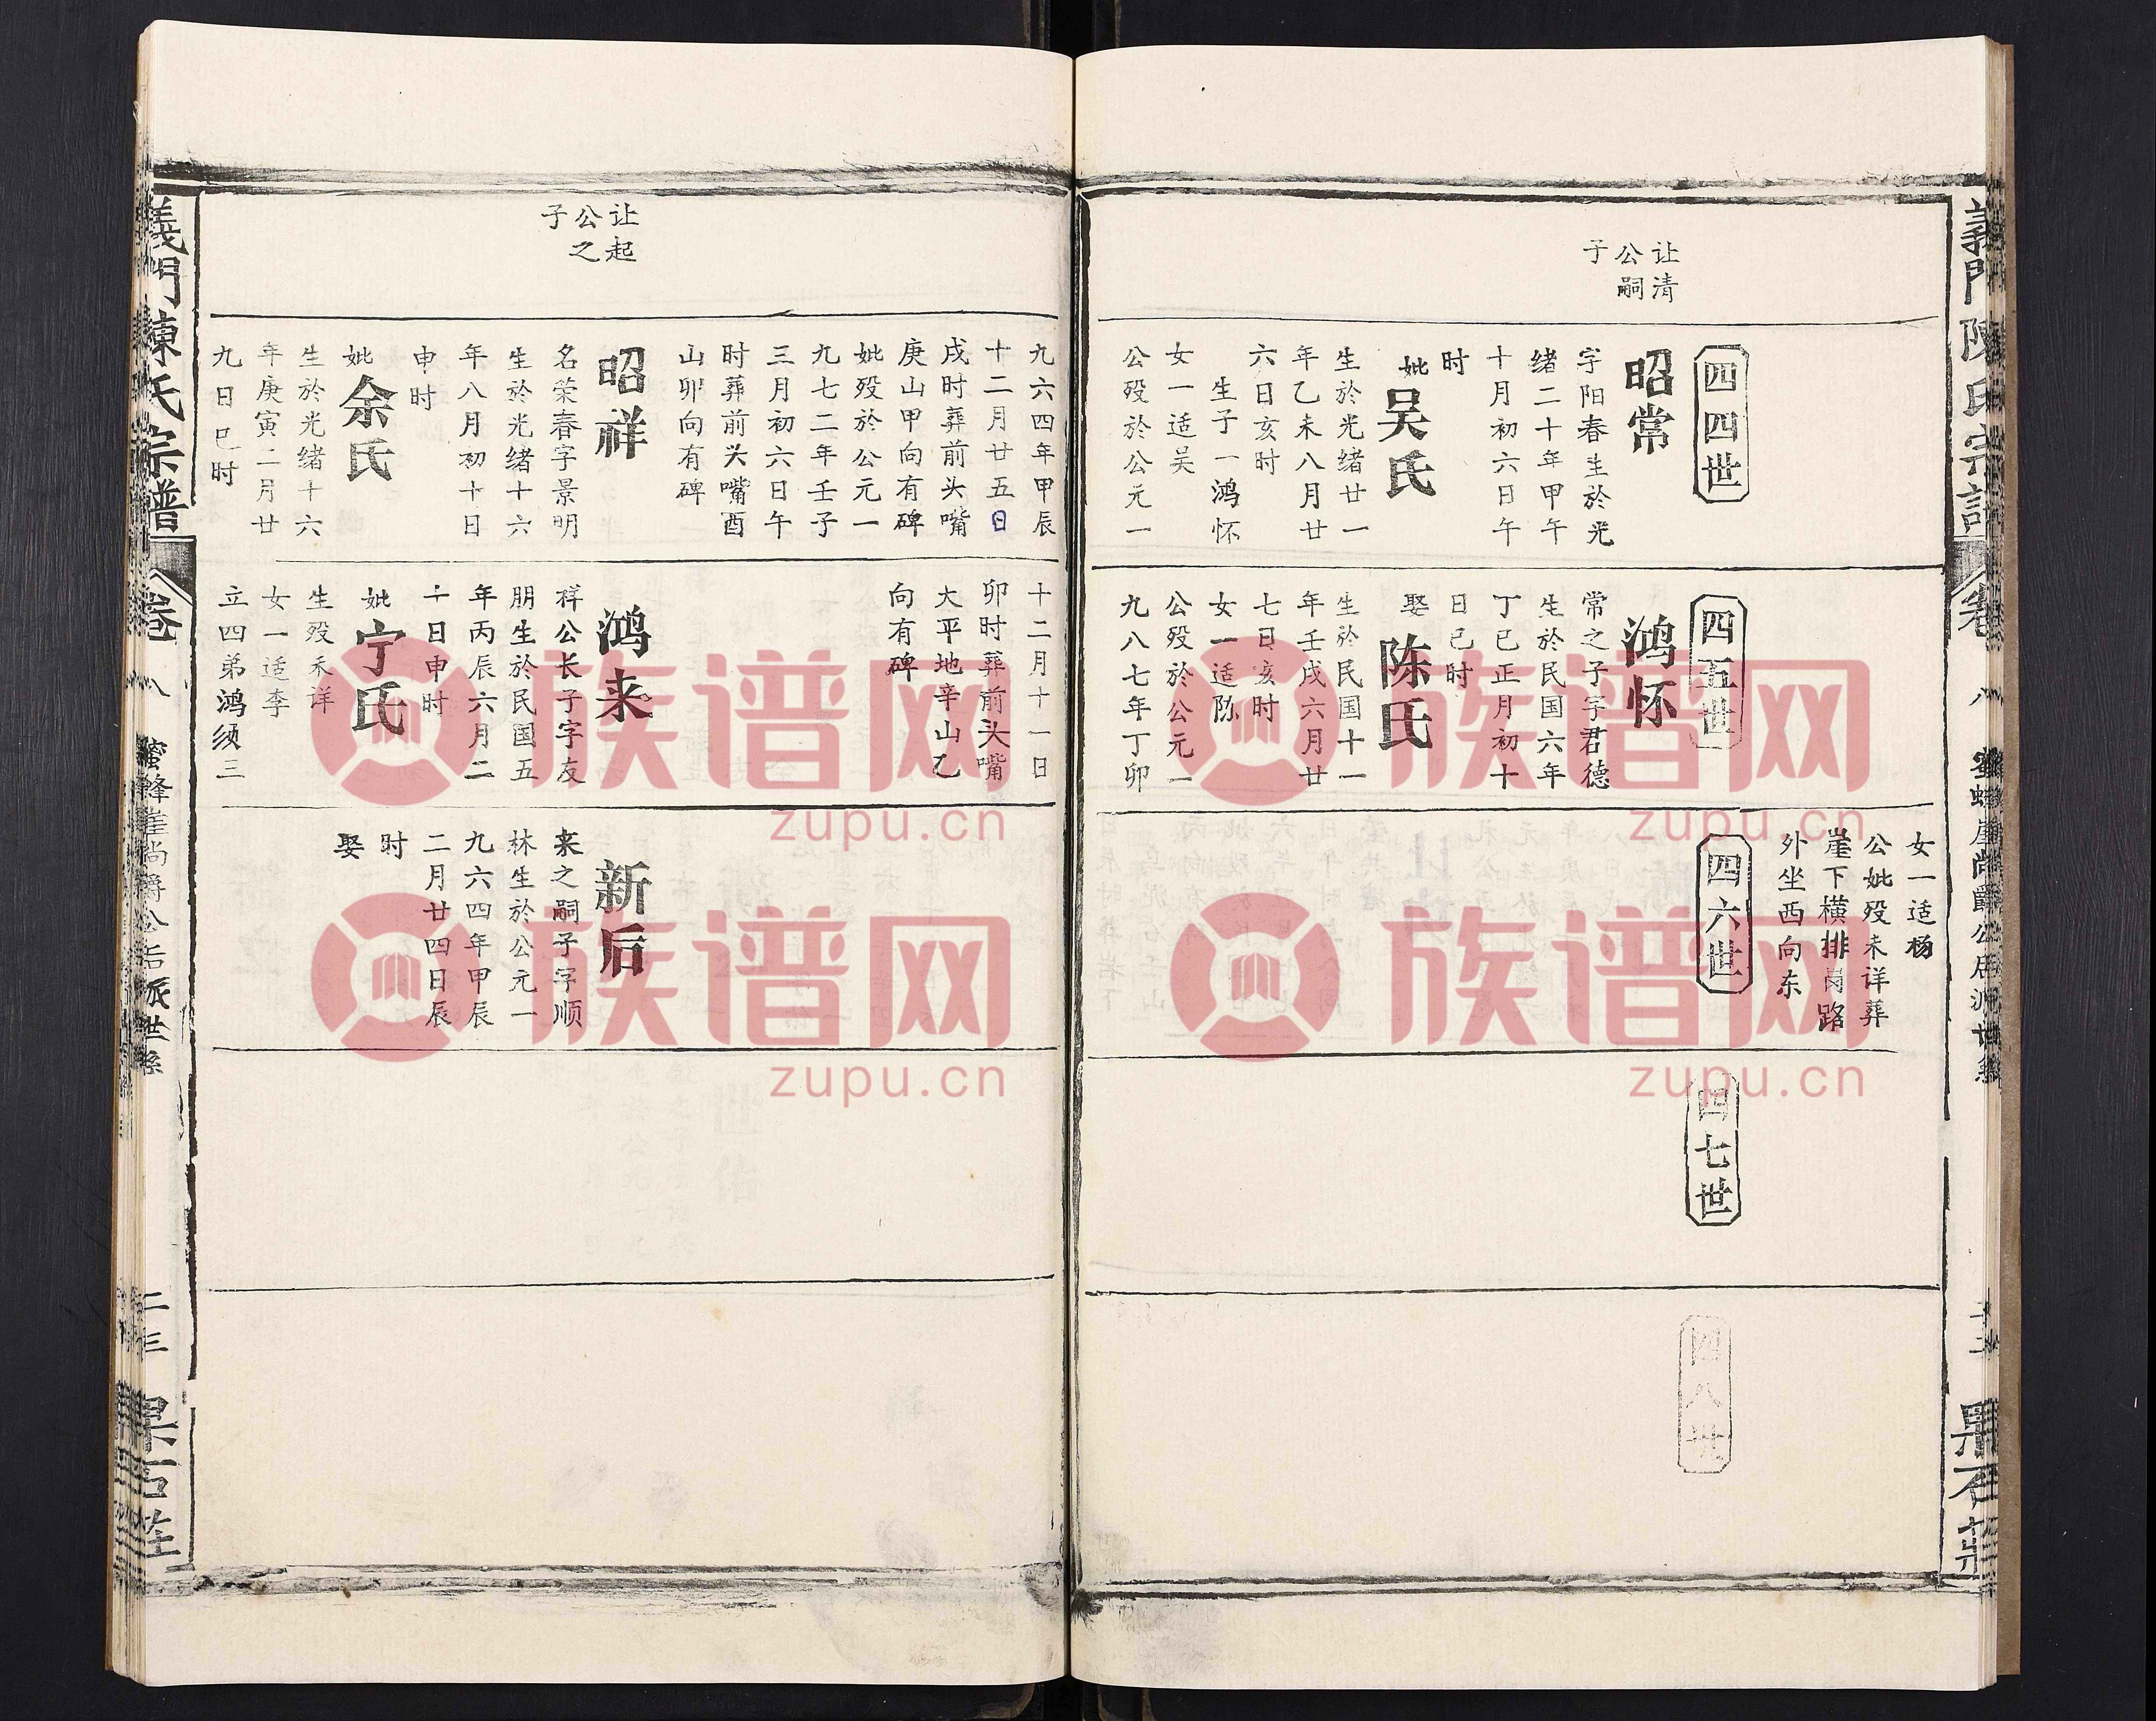 義門陳氏宗譜
卷八
蜜蜂崖尚爵公后派世系
果石莊
让清
公嗣
子
四四世
昭常
字阳春生於光
绪二十年甲午
十月初六日午
时
妣吴氏
生於光绪廿一
年乙未八月廿
六日亥时
生子一鸿怀
女一适吴
公殁於公元一
九六四年甲辰
十二月廿五日
戌时葬前头嘴
庚山甲向有碑
妣殁於公元一
九七二年壬子
三月初六日午
时葬前头嘴酉
山卯向有碑
四五世
鸿怀
常之子字君德
生於民国六年
丁巳正月初十
日巳时
娶陈氏
生於民国十一
年壬戌六月廿
七日亥时
女一适陈
公殁於公元一
九八七年丁卯
十二月十一日
卯时葬前头嘴
大平地辛山乙
向有碑
女一适杨
公妣殁未详葬
崖下横排岗路
外坐西向东
四六世
四七世
四八世
让起
公之
子
昭祥
名荣春字景明
生於光绪十六
年八月初十日
申时
妣余氏
生於光绪十六
年庚寅二月廿
九日巳时
鸿来
祥公长子字友
朋生於民国五
年丙辰六月二
十日申时
妣宁氏
生殁未详
女一适李
立四弟鸿须三
新后
来之嗣子字顺
林生於公元一
九六四年甲辰
二月廿四日辰
时
娶
義門陳氏宗譜
卷八
蜜蜂崖尚爵公后派世系
二三
果石莊
族谱网
zupu.cn
族谱网
zupu.cn
族谱网
zupu.cn
族谱网
zupu.cn